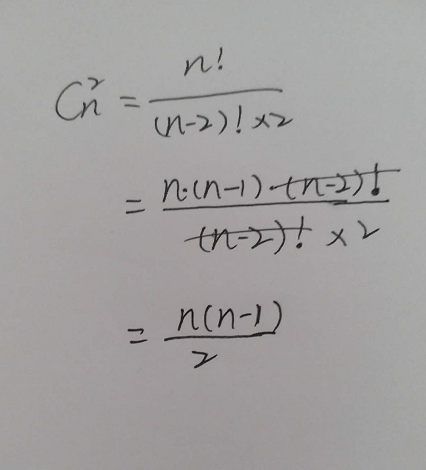 Cₙ² = n! / (n-2)! × 2
= n·(n-1)·(n-2)! / (n-2)! × 2
= n(n-1) / 2